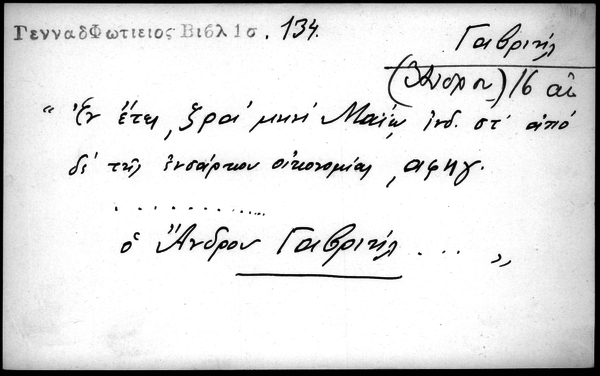 ΓενναδΦωτιειος Βιβλ 1σ. 134.
Γαβριήλ
(Ἄνδρου) 16 αἰ
“ Ἐν ἔτει ͵ζραʹ μηνί Μαίῳ ἰνδ. στʹ ἀπό
δέ τῆς ἐνσάρκου οἰκονομίας ͵αφηγ.
. . . . . . . . . . . . .
ὁ Ἄνδρου Γαβριήλ . . . „